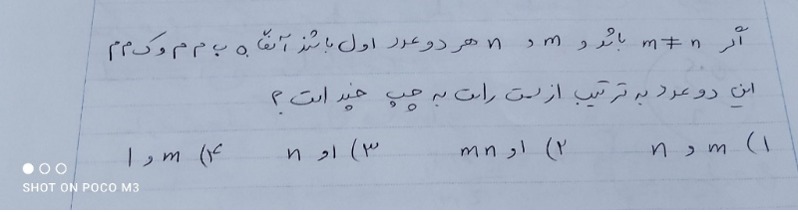 اگر m≠n باشد و m و n هر دو عدد اول باشند آنگاه ب م م و ک م م
این دو عدد به ترتیب از سمت راست به چپ چند است؟
۱) m و n ۲) ۱ و mn ۳) ۱ و n ۴) m و ۱
SHOT ON POCO M3